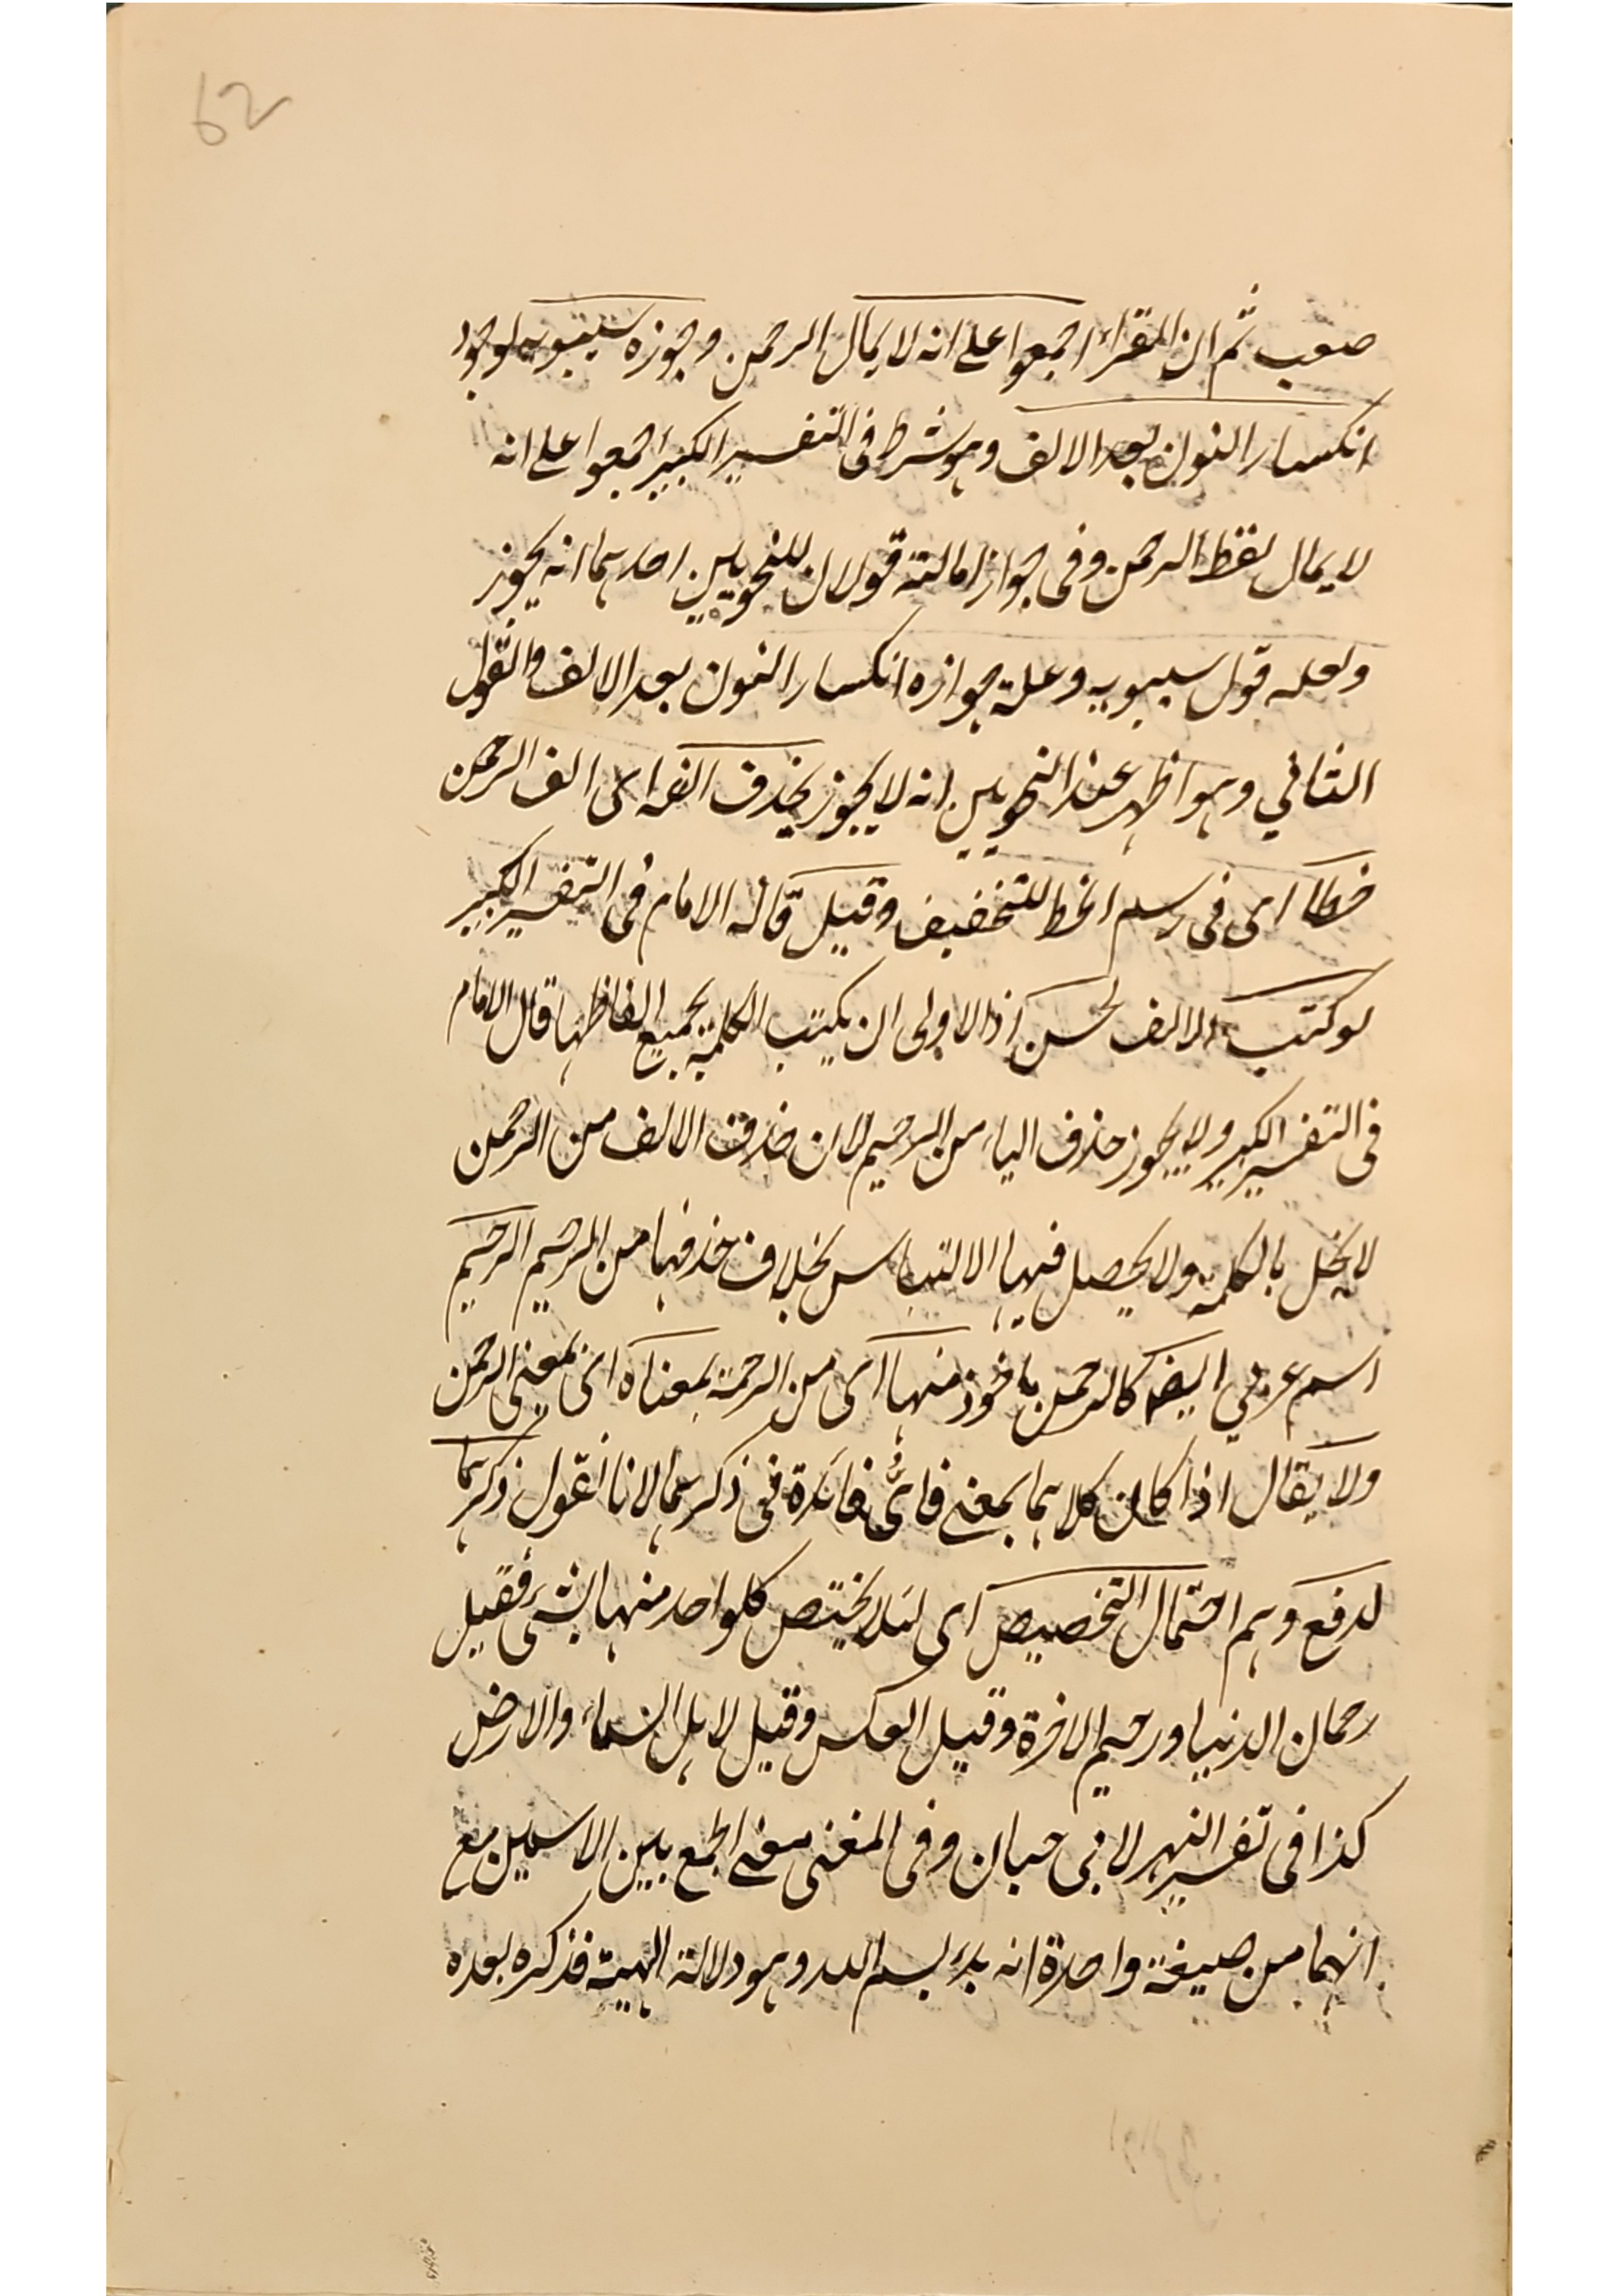 62
صعب ثم ان القراء اجمعوا على انه لا يمال الرحمن وجوزه سيبويه لوجود
انكسار النون بعد الالف وهو شرط فى التفسير الكبير اجمعوا على انه
لا يمال لفظ الرحمن وفى جواز امالته قولان للنحويين احدهما انه يجوز
ولعله قول سيبويه وعلة جوازه انكسار النون بعد الالف والقول
الثاني وهو اظهر عند النحويين انه لا يجوز يحذف الفه اى الف الرحمن
خطا اى فى رسم الخط للتخفيف وقيل قاله الامام فى التفسير الكبير
لو كتب الالف لحسن اذ الاولى ان يكتب الكلمة بجميع الفاظها قال الامام
فى التفسير الكبير ولا يجوز حذف الياء من الرحيم لان حذف الالف من الرحمن
لا يخل بالكلمة ولا يحصل فيها الالتباس بخلاف حذفها من الرحيم الرحيم
اسم عربي ايضا كالرحمن ماخوذ منها اى من الرحمة بمعناه اى بمعنى الرحمن
ولا يقال اذا كان كلاهما بمعنى فاىُّ فائدة فى ذكرهما لانا نقول ذكرهما
لدفع وهم احتمال التخصيص اى لئلا يختص كلواحد منها بشئ فقيل
رحمان الدنيا ورحيم الاخرة وقيل العكس وقيل لاهل السماء والارض
كذا فى تفسير النهر لابى حبان وفى المغنى معنى الجمع بين الاسمين مع
انهما من صيغة واحدة انه بدء بسم الله وهو دلالة الهيته فذكره بعده